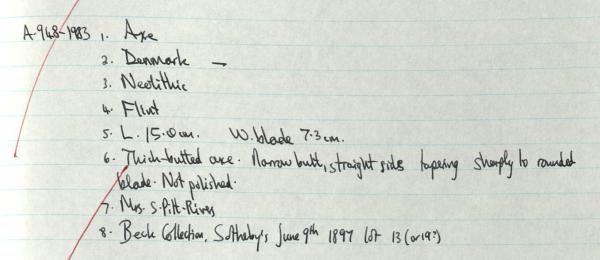 A.948-1983 1. Axe
2. Denmark —
3. Neolithic
4. Flint
5. L. 15.0cm. W. blade 7.3cm.
6. Thick-butted axe. Narrow butt, straight sides tapering sharply to rounded
blade. Not polished.
7. Mrs. S. Pitt-Rivers
8. Beck Collection, Sotheby's June 9th 1897 lot 13 (or 19?)